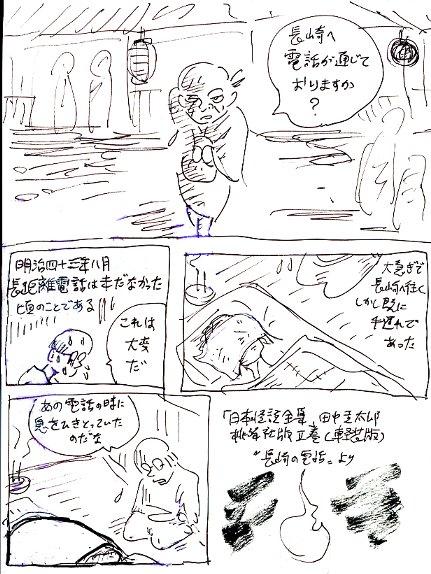 長崎へ
電話が通じて
おりますか
?
明治四十三年八月
長距離電話は未だなかった
頃のことである
これは
大変
だ
大急ぎで
長崎へ往く
しかし既に
手遅れで
あった
あの電話の時に
息をひきとっていた
のだな
「日本怪談全集」田中貢太郎
桃源社版 II巻(軽装版)
"長崎の電話" より